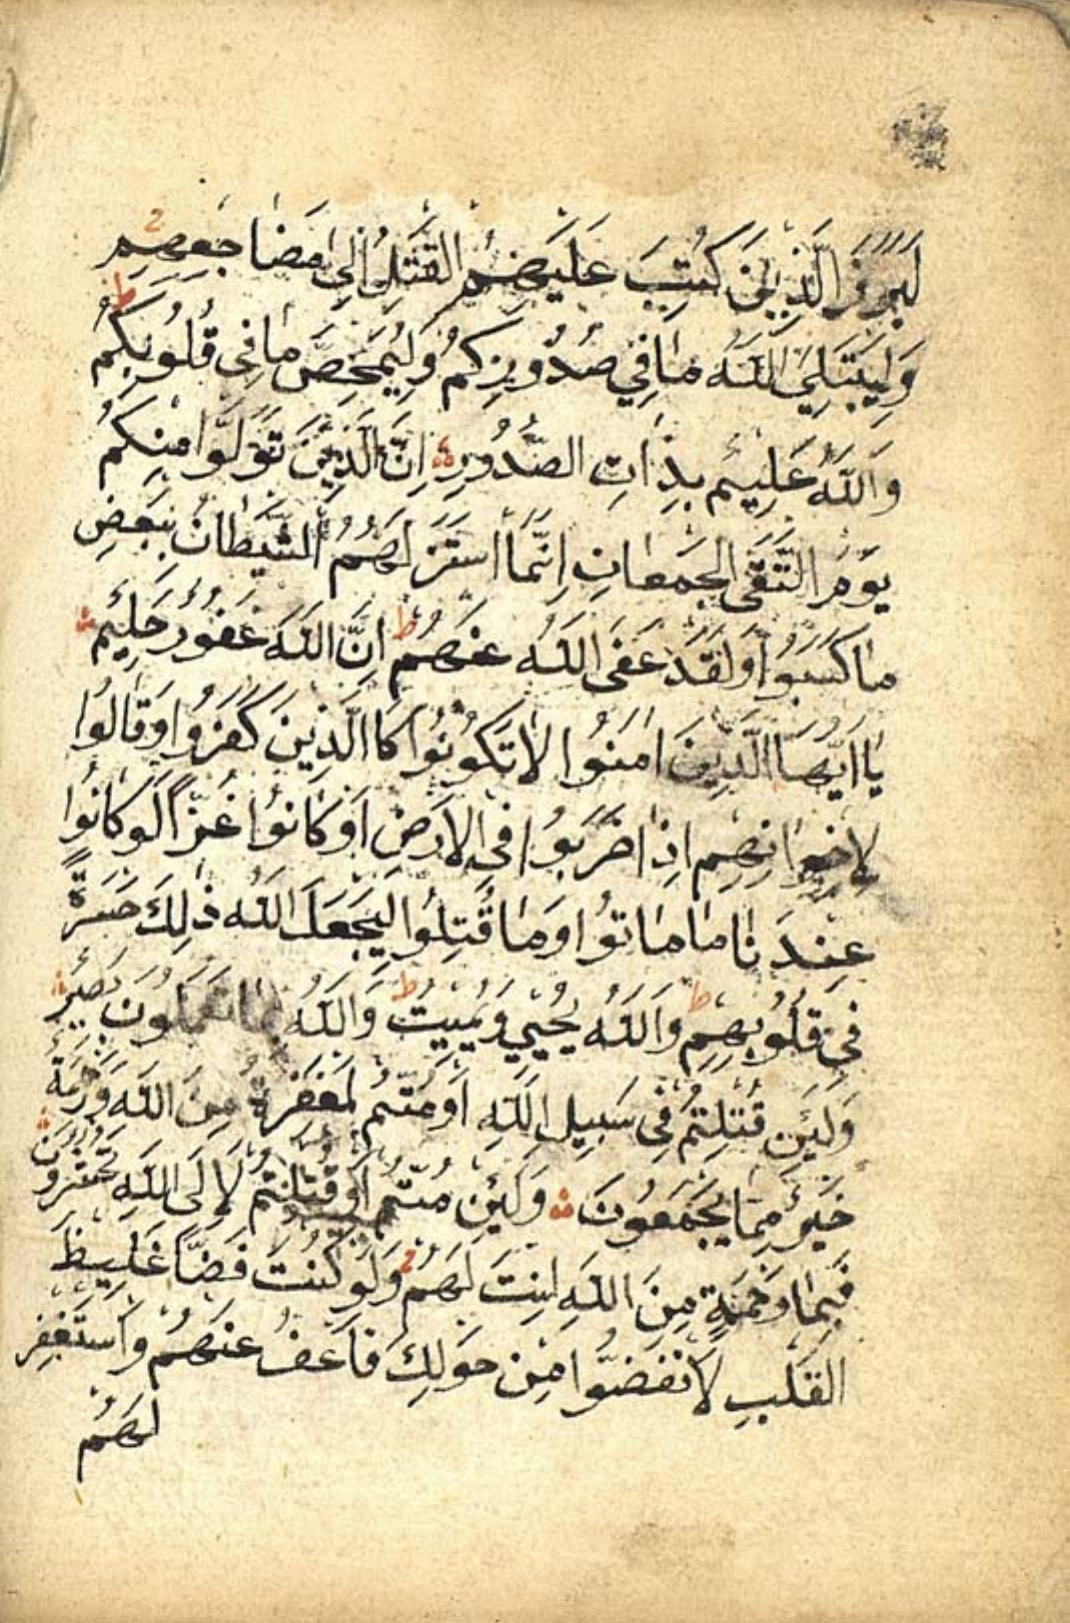 لَبَرَزَ الَّذِينَ كُتِبَ عَلَيْهِمُ القَتْلُ اِلَى مَضَاجِعِهِم
وَلِيَبْتَلِيَ اللّٰهُ مَا فِي صُدُورِكُمْ وَلِيُمَحِّصَ مَا فِى قُلُوبِكُم
وَاللّٰهُ عَلِيْم بِذَاتِ الصُّدُورِ اِنَّ الَّذِيْنَ تَوَلَّوا مِنكُم
يَوْمَ التَّقَى الجَمْعانِ اِنَّمَا استَزَلَهُمُ الشَّيْطَانُ بِبَعْضِ
مَا كَسَبُوا وَلَقَدْ عَفَى اللّٰهُ عَنْهُمْ اِنَّ اللّٰهَ غَفُورٌ حَلِيْمٌ
يَا اَيُّهَا الَّذِينَ امَنُوا لَا تَكُونُوا كَاالَّذِينَ كَفَرُوا وَقَالُوا
لِاخْوَانِهِم اِذَا ضَرَبُوا فِى الاَرْضِ اَوْ كَانُوْا غُزًّا لَوْ كَانُوا
عِنْدَنَا مَا مَاتُوا وَمَا قُتِلُوا لِيَجْعَلَ اللّٰهُ ذٰلِكَ حَسْرَةً
فِى قُلُوبِهِمْ وَاللّٰهُ يُحْيِي وَيُمِيتُ وَاللّٰهُ بِمَا تَعْمَلُونَ بَصِيرٌ
وَلَئِن قُتِلْتُمْ فِى سَبِيلِ اللّٰهِ اَوْ مُتُّمْ لَمَغْفِرَةٌ مِنَ اللّٰهِ وَرَحْمَةٌ
خَيْرٌ مِمَّا يَجْمَعُونَ وَلَئِن مُتُّمْ اَوْ قُتِلْتُمْ لَاِلَى اللّٰهِ تُحْشَرُونَ
فَبِمَا رَحْمَةٍ مِنَ اللّٰهِ لِنتَ لَهُمْ وَلَوْ كُنتَ فَضًّا غَلِيظَ
القَلْبِ لَا نْفَضُّوا مِنْ حَوْلِكَ فَاعْفُ عَنْهُمْ وَاسْتَغْفِر
لَهُمْ